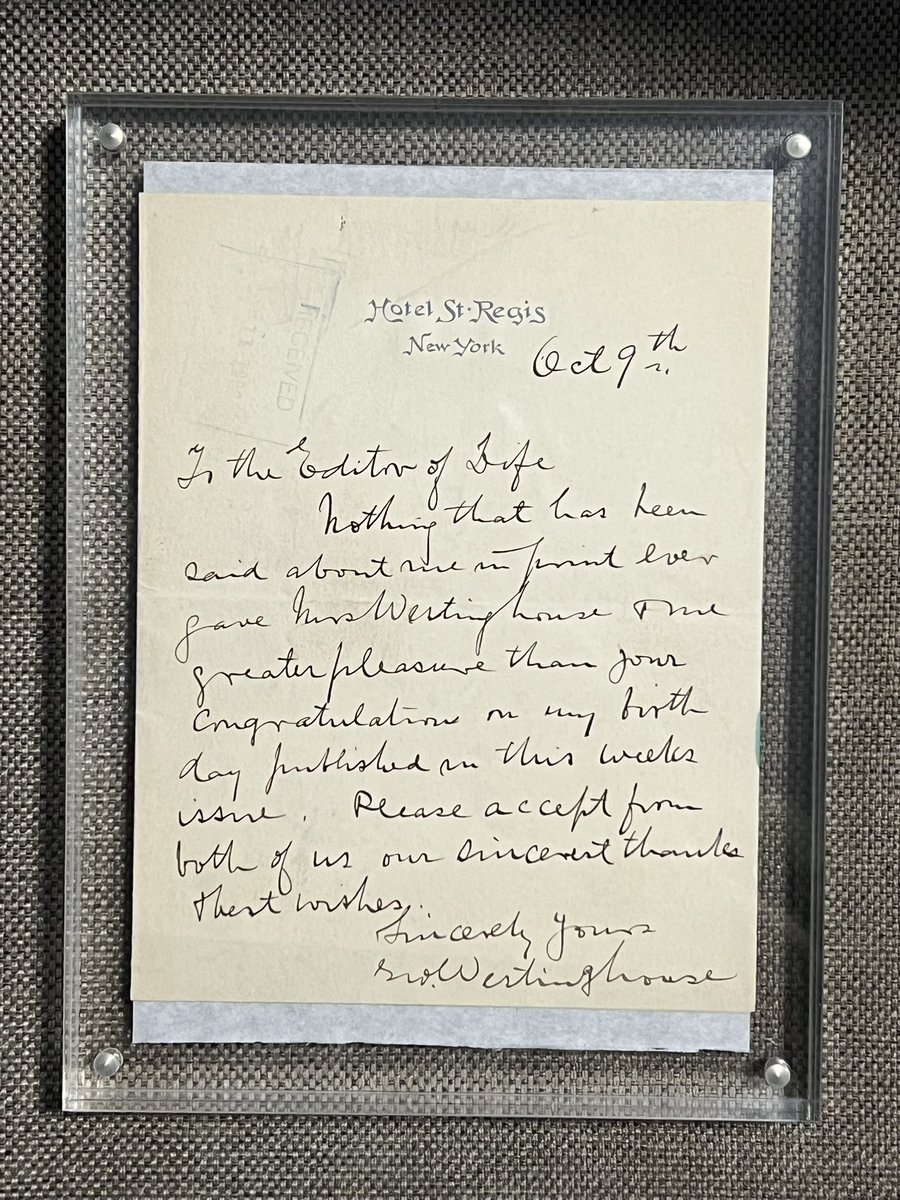 Hotel St. Regis
New York
Oct 9th
RECEIVED
To the Editor of Life
Nothing that has been
said about me in print ever
gave Mrs Westinghouse & me
greater pleasure than your
congratulations on my birth
day published in this weeks
issue. Please accept from
both of us our sincerest thanks
& best wishes.
Sincerely Yours
Geo. Westinghouse